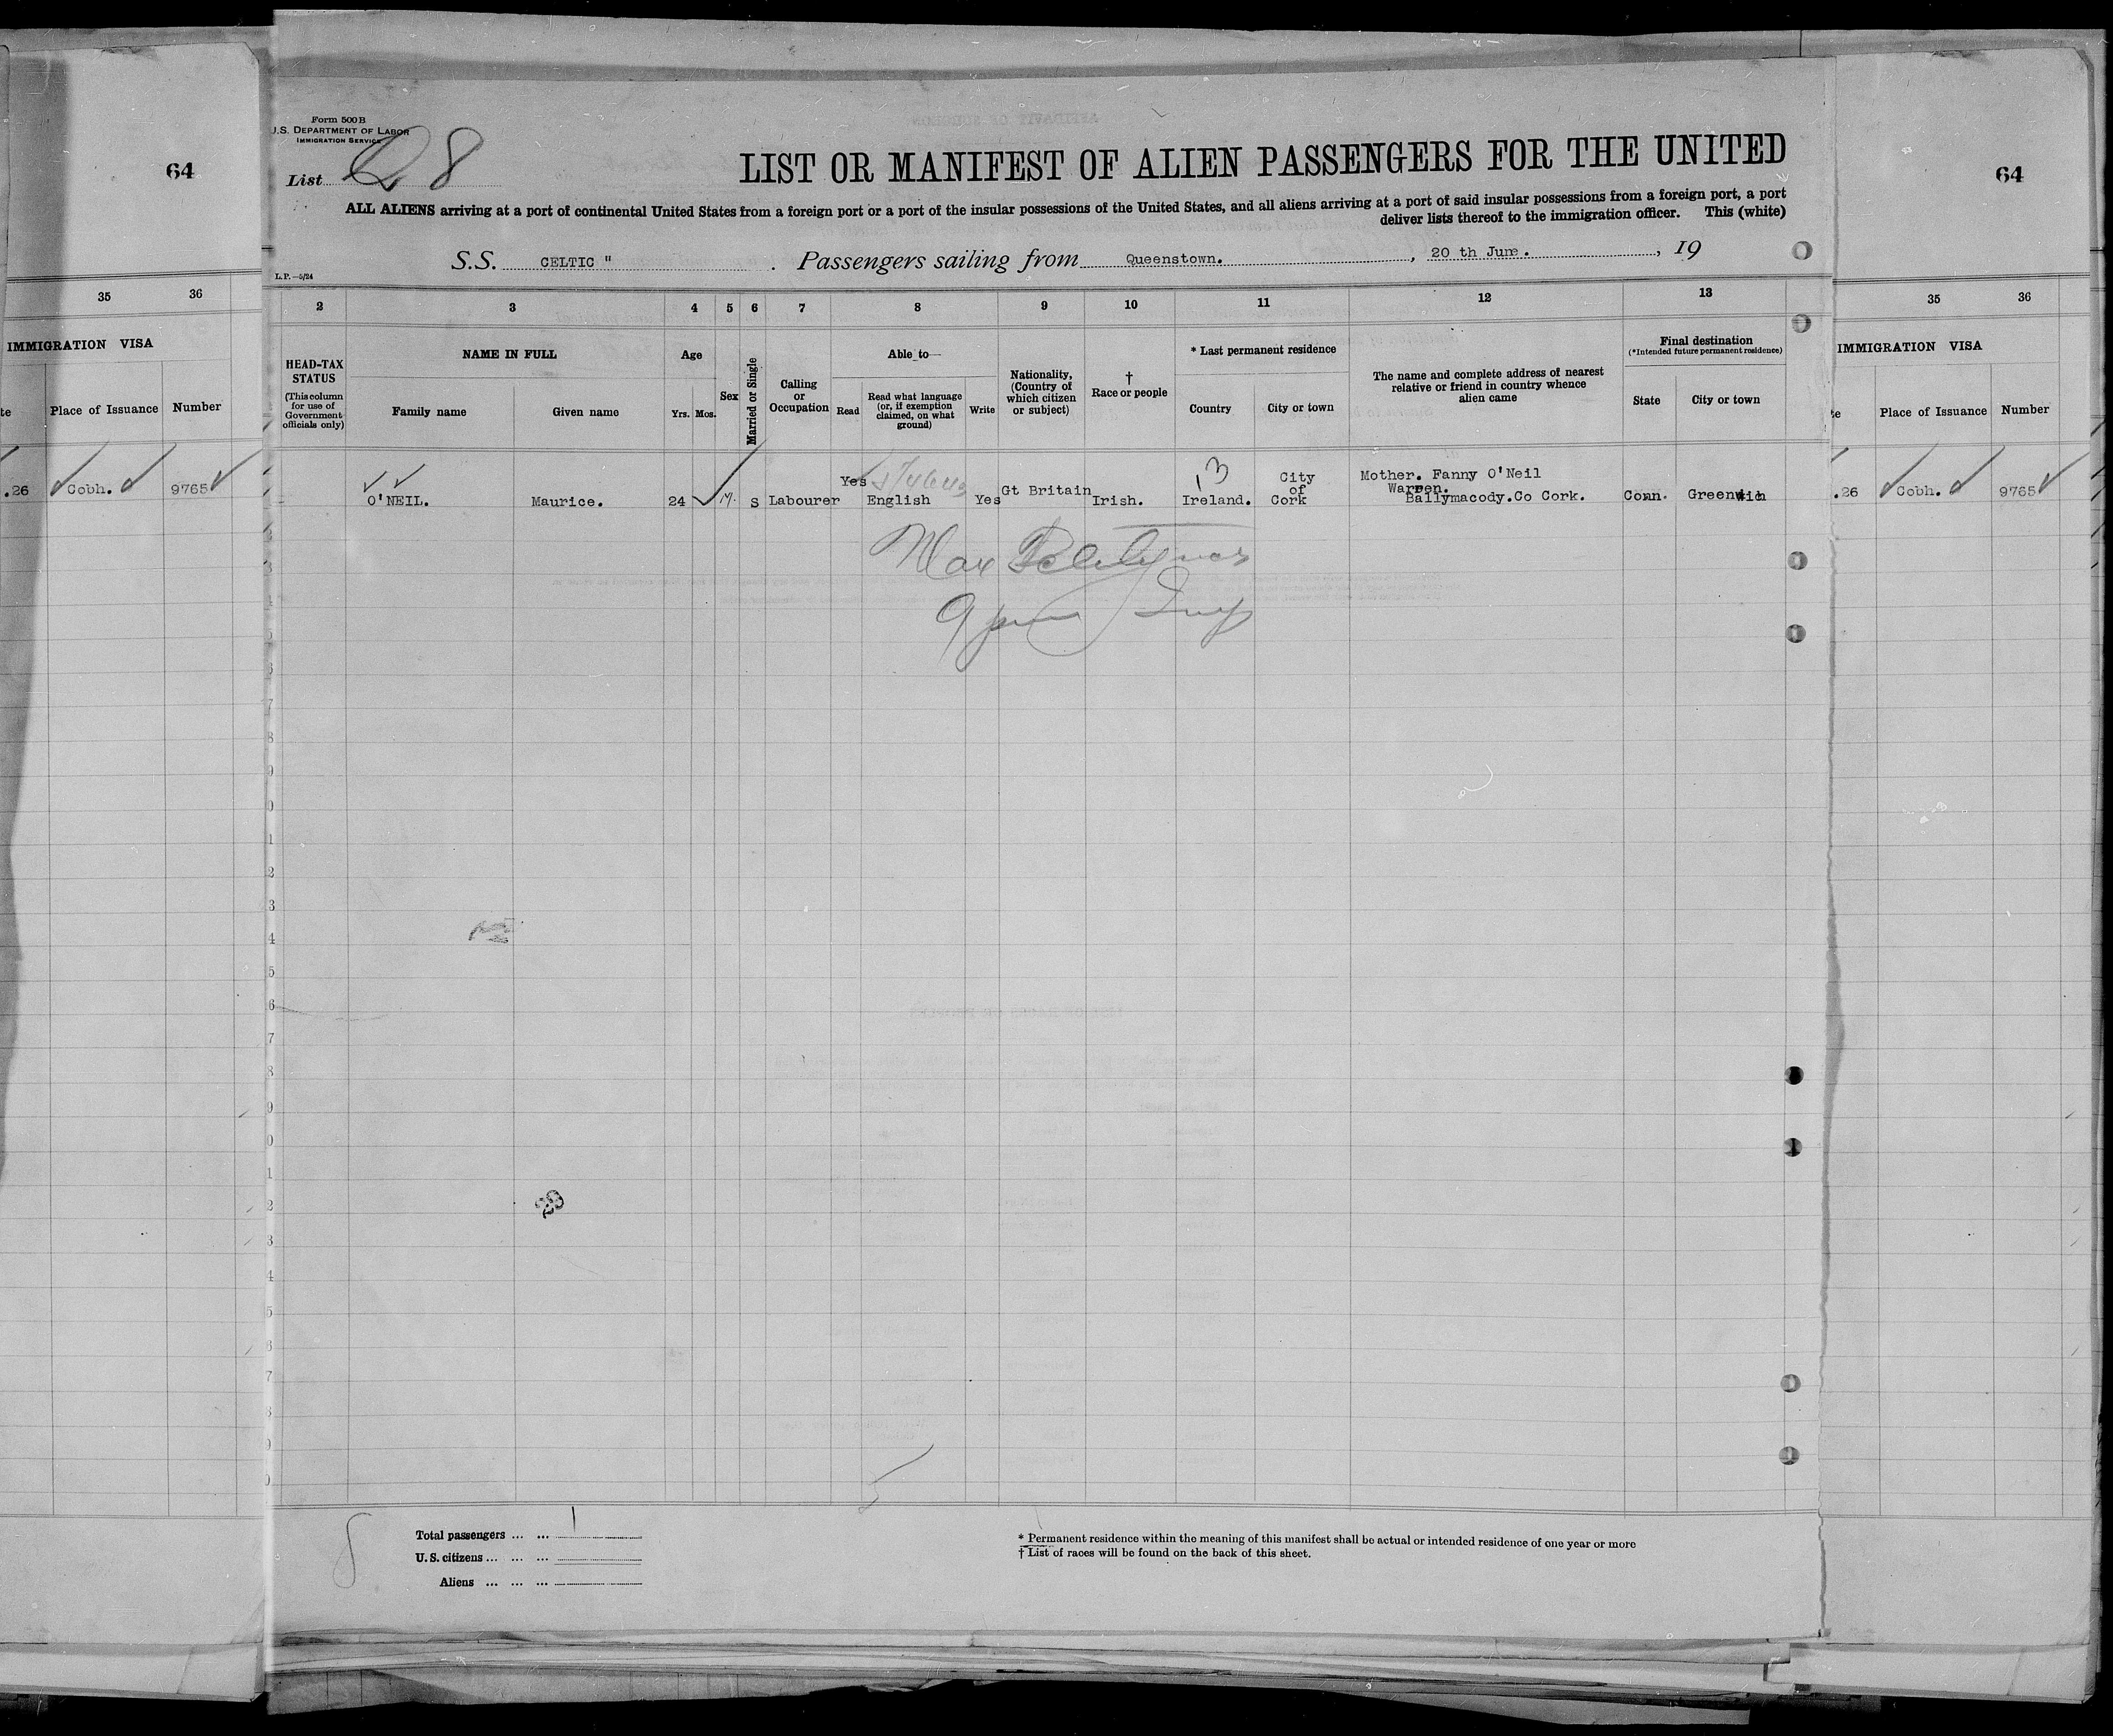 64
35 36
IMMIGRATION VISA
Place of Issuance Number
.26 Cobh. 9765
Form 500B
U.S. DEPARTMENT OF LABOR
IMMIGRATION SERVICE
List 28
LIST OR MANIFEST OF ALIEN PASSENGERS FOR THE UNITED
ALL ALIENS arriving at a port of continental United States from a foreign port or a port of the insular possessions of the United States, and all aliens arriving at a port of said insular possessions from a foreign port, a port
deliver lists thereof to the immigration officer. This (white)
S.S. CELTIC " . Passengers sailing from Queenstown. , 20 th June. , 19
L.P.—5/24
2 3 4 5 6 7 8 9 10 11 12 13
HEAD-TAX
STATUS
(This column
for use of
Government
officials only)
NAME IN FULL
Family name Given name
Age
Yrs. Mos.
Sex
Married or Single
Calling
or
Occupation
Able to—
Read
Read what language
(or, if exemption
claimed, on what
ground)
Write
Nationality,
(Country of
which citizen
or subject)
†
Race or people
* Last permanent residence
Country City or town
The name and complete address of nearest
relative or friend in country whence
alien came
Final destination
(*Intended future permanent residence)
State City or town
O'NEIL. Maurice. 24 M. S Labourer Yes English Yes Gt Britain Irish.
13
Ireland.
City
of
Cork
Mother. Fanny O'Neil
Warren.
Ballymacody.Co Cork.
Conn. Greenwich
Total passengers ... ... 1
U.S. citizens ... ... ...
Aliens ... ... ...
* Permanent residence within the meaning of this manifest shall be actual or intended residence of one year or more
† List of races will be found on the back of this sheet.
64
35 36
IMMIGRATION VISA
Place of Issuance Number
.26 Cobh. 9765